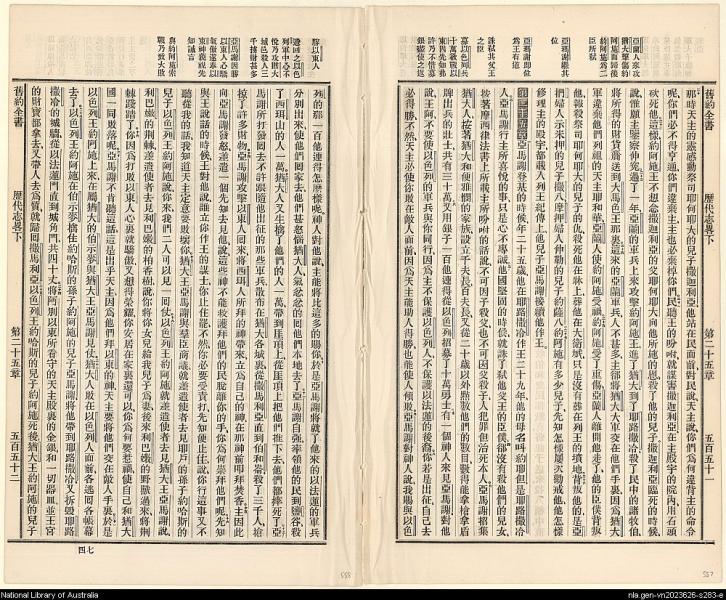 亞蘭人來攻
猶大擊傷約
阿施而歸後
約阿施為二
臣所弒
亞瑪謝繼其
位
亞瑪謝即位
為王有道
誅弒其父王
之臣
募以色列兵
十萬欲戰以
東因先知勸
許乃不惜募
銀並使之返
舊約全書
歷代志畧下
第二十五章
五百五十一
那時天主的靈感動祭司耶何耶大的兒子撒迦利亞他站在民面前對民說天主說你們為何違背主的命令
呢你們必不得亨通你們違棄主主也必棄掉你們民聽王的吩咐就謀害撒迦利亞在主殿宇的院內用石頭
砍死他這樣約阿施王不想念撒迦利亞的父耶何耶大向他所施的恩殺了他的兒子撒迦利亞臨死的時候
說惟願主鑒察伸冤過了一年亞蘭的軍兵上來攻擊約阿施王進了猶大到了耶路撒冷殺了民中的諸牧伯
將所得的財貨送到大馬色王那裏這來的亞蘭軍兵人不甚多主都將猶大大軍交在他們手裏因為猶大
軍違棄他們列祖的天主耶和華亞蘭人使約阿施受禍約阿施受了重傷亞蘭人離開他走了他的臣僕背叛
他報殺祭司耶何耶大的兒子的仇殺死他在牀上葬他在大衛城只是沒有葬在列王的墳地背叛他的是亞
捫婦人示米押的兒子撒八摩押婦人伸勒的兒子約薩八約阿施有多少兒子先知怎樣屢次戒他他怎樣
修理主的殿宇都載入列王記傳上他兒子亞瑪謝接續他作王
第二十五章 亞瑪謝登基的時候年二十五歲他在耶路撒冷作王二十九年他的母名叫約耶但是耶路撒冷
人亞瑪謝行主所喜悅的事只是心不專誠他國堅固的時候就誅了弒他父王的臣僕都沒有殺他們的兒女
按著摩西律法書上所載主所吩咐的話說不可因子殺父也不可因父殺子人犯罪但治死本人亞瑪謝招集
猶大人按著猶大和便雅憫的家族設立千夫長百夫長又從二十歲以外點數他們的數目數得能拿槍拿盾
牌出兵的壯士共有三十萬又用銀子一百他連得從以色列招募了十萬勇士有一個神人來見亞瑪謝對他
說王阿不要使以色列的軍兵與你同行因為主不保護以色列人不保護以法蓮的後裔你若是出征自己去
必得勝不然天主必使你敗在敵人面前因為天主能助人得勝也能使人傾敗亞瑪謝對神人說我賜與以色
勝以東人
遣回之以色
列軍中心不
悅乃攻猶大
城邑殺人三
千擄財甚多
亞瑪謝因勝
以東人心驕
氣傲遂奉以
東神衹視先
知誡言
與約阿施索
戰乃致大敗
列的那一百他連得怎麼樣呢神人對他說主能將比這多的賜你於是亞瑪謝就了他來的以法蓮的軍兵
分別出來使他們回家去他們甚惱怒猶大人氣忿忿的回他們本地去了亞瑪謝自強率領他的民到鹽谷殺
了西珥山的人一萬猶大人又生擒了他們的人一萬帶到崖頂上從崖頂上把他們推下去他們都摔死了亞
瑪謝所打發回去不許跟隨他出征的那些軍兵散布在猶大各城裏從撒馬利亞直到伯和崙殺了三千人搶
掠了許多財物亞瑪謝攻擊以東人回來將西珥人所拜的神帶來立為自己的神在那神前叩拜焚香主因此
向亞瑪謝發怒差遣一個先知去見他說這些神不能救護拜他們的民脫離你的手你為何崇拜他們呢先知
與王說話的時候王對他說誰立你作王的謀士你止住罷不然你必要受責打先知便止住說你行這事又不
聽從我的話我知道天主定意要敗壞你猶大王亞瑪謝與羣臣商議就差遣使者去見耶戶的孫子約哈斯的
兒子以色列王約阿施說你來我們二人可以見一回仗以色列王約阿施就差遣使者去見猶大王亞瑪謝說
利巴嫩的荊棘差遣使者去見利巴嫩的柏香樹說你將你女兒給我兒子為妻後來利巴嫩的野獸過來將荊
棘踐踏了你因為打敗以東人心裏就驕傲又想得榮耀你安居在家裏還可以你為何要惹禍使自己和猶大
國一同敗落呢亞瑪謝不肯聽這話這是出乎天主因為他們拜以東的神天主要將他們交在敵人手裏於是
以色列王約阿施上來在屬猶大的伯示麥與猶大王亞瑪謝見仗猶大人敗在以色列人面前各逃回各帳幕
去了以色列王約阿施在伯示麥擒住約哈斯的孫子約阿施的兒子亞瑪謝將他帶到耶路撒冷又拆毀耶路
撒冷的城牆從以法蓮門直到城角門共四十丈將阿別以東所看守的天主殿裏的金銀和一切器皿並王宮
的財寶都拿去又帶人去為質就歸回撒馬利亞以色列王約哈斯的兒子約阿施死後猶大王約阿施的兒子
舊約全書
歷代志畧下
第二十五章
五百五十二
四七
558
557
National Library of Australia
nla.gen-vn2023626-s283-e